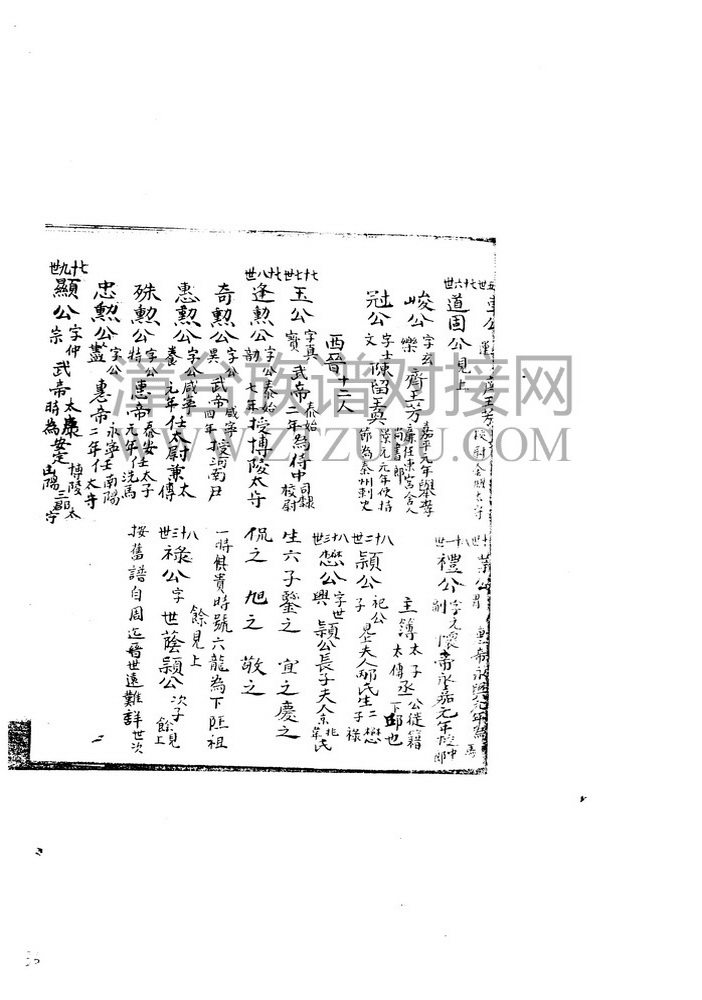 七十六世
道固公 見上
峻公 字玄樂 齊王芳嘉平元年舉孝廉任東宮舍人尚書郎
冠公 字士文 陳留王奐景元元年使持節為秦州刺史
西晉十二人
七十七世
玉公 字真寶 武帝泰始二年為侍中司隸校尉
七十八世
逢勲公 字公韵 泰始七年授博陵太守
奇勲公 字公異 武帝咸寧四年授河南尹
惠勲公 字公養 咸寧元年任太尉兼太傅
殊勲公 字公特 惠帝泰安元年任太子洗馬
忠勲公 字公藎 惠帝永寧二年任南陽太守
七十九世
顯公 字仲宗 武帝太康時為博陵安定山陽三郡太守
八十一世
禮公 字元嗣 懷帝永嘉元年授中郎
主簿太子太傅丞公徙籍下邳也
八十二世
頴公 祀公子 見上 夫人鄺氏生二子懋祿
八十三世
懋公 字世興 頴公長子夫人京兆韋氏
生六子鑒之 宜之慶之
侃之 旭之 敬之
一時俱貴時號六龍為下邳祖
餘見上
八十三世
祿公 字世蔭 頴公次子餘見上
按舊譜自周迄晉世遠難詳世次
漳谷族谱对接网
WWW.ZTZUPU.COM